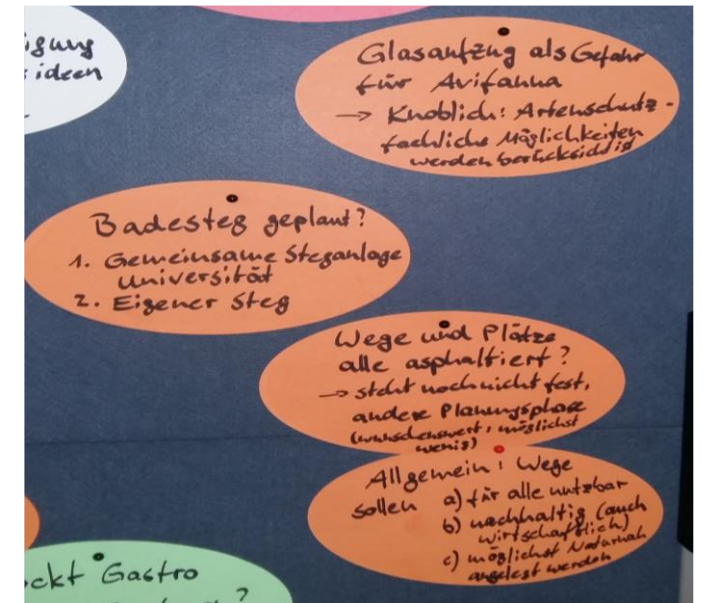 igung
ideen
Glasaufzug als Gefahr
für Avifauna
→ Knoblich: Artenschutz-
fachliche Möglichkeiten
werden berücksichtigt
Badesteg geplant?
1. Gemeinsame Steganlage
Universität
2. Eigener Steg
Wege und Plätze
alle asphaltiert?
→ steht noch nicht fest,
andere Planungsphase
(wünschenswert, möglichst
wenig)
Allgemein: Wege
sollen a) für alle nutzbar
b) nachhaltig (auch
wirtschaftlich)
c) möglichst Naturnah
angelegt werden
ckt Gastro
?